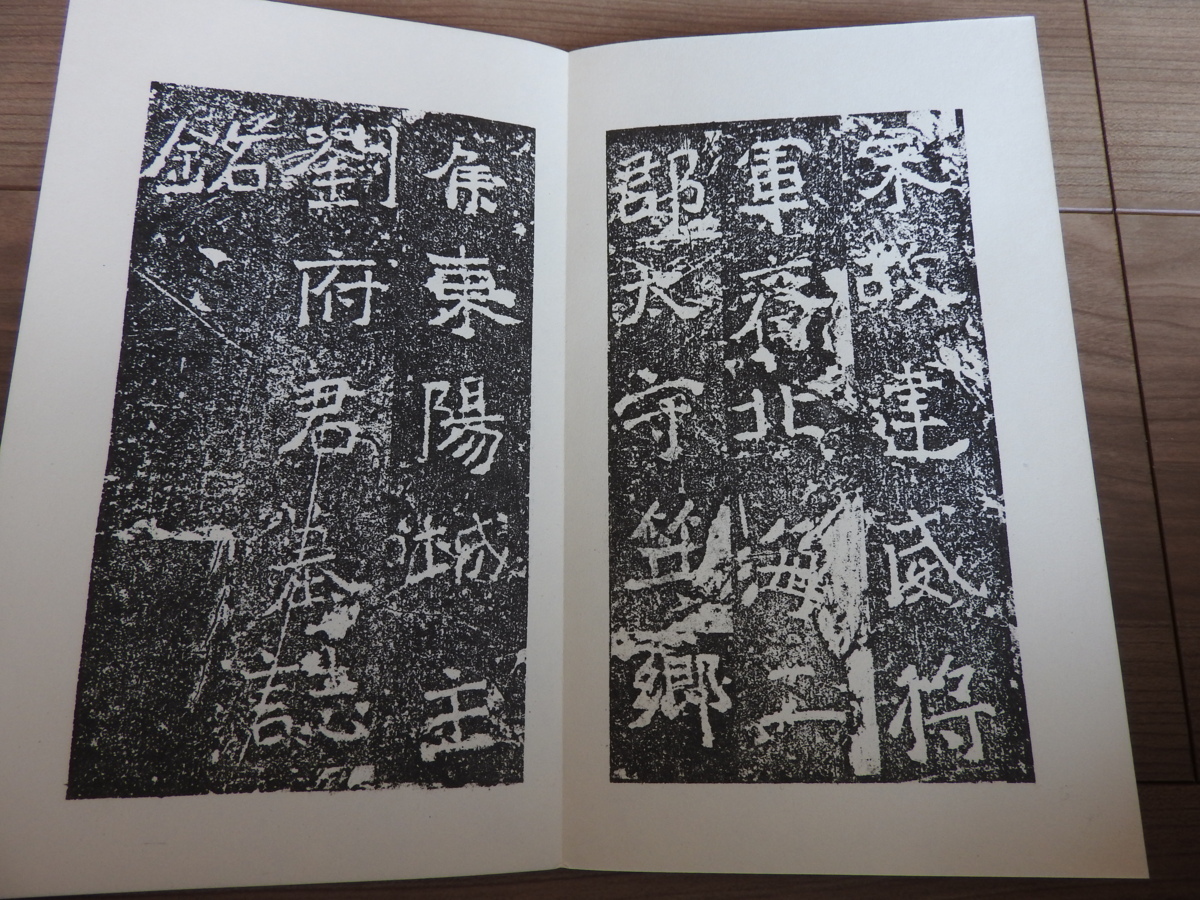 宋故建威將
軍齊北海二
郡太守笠鄉
侯東陽城主
劉府君墓誌
銘